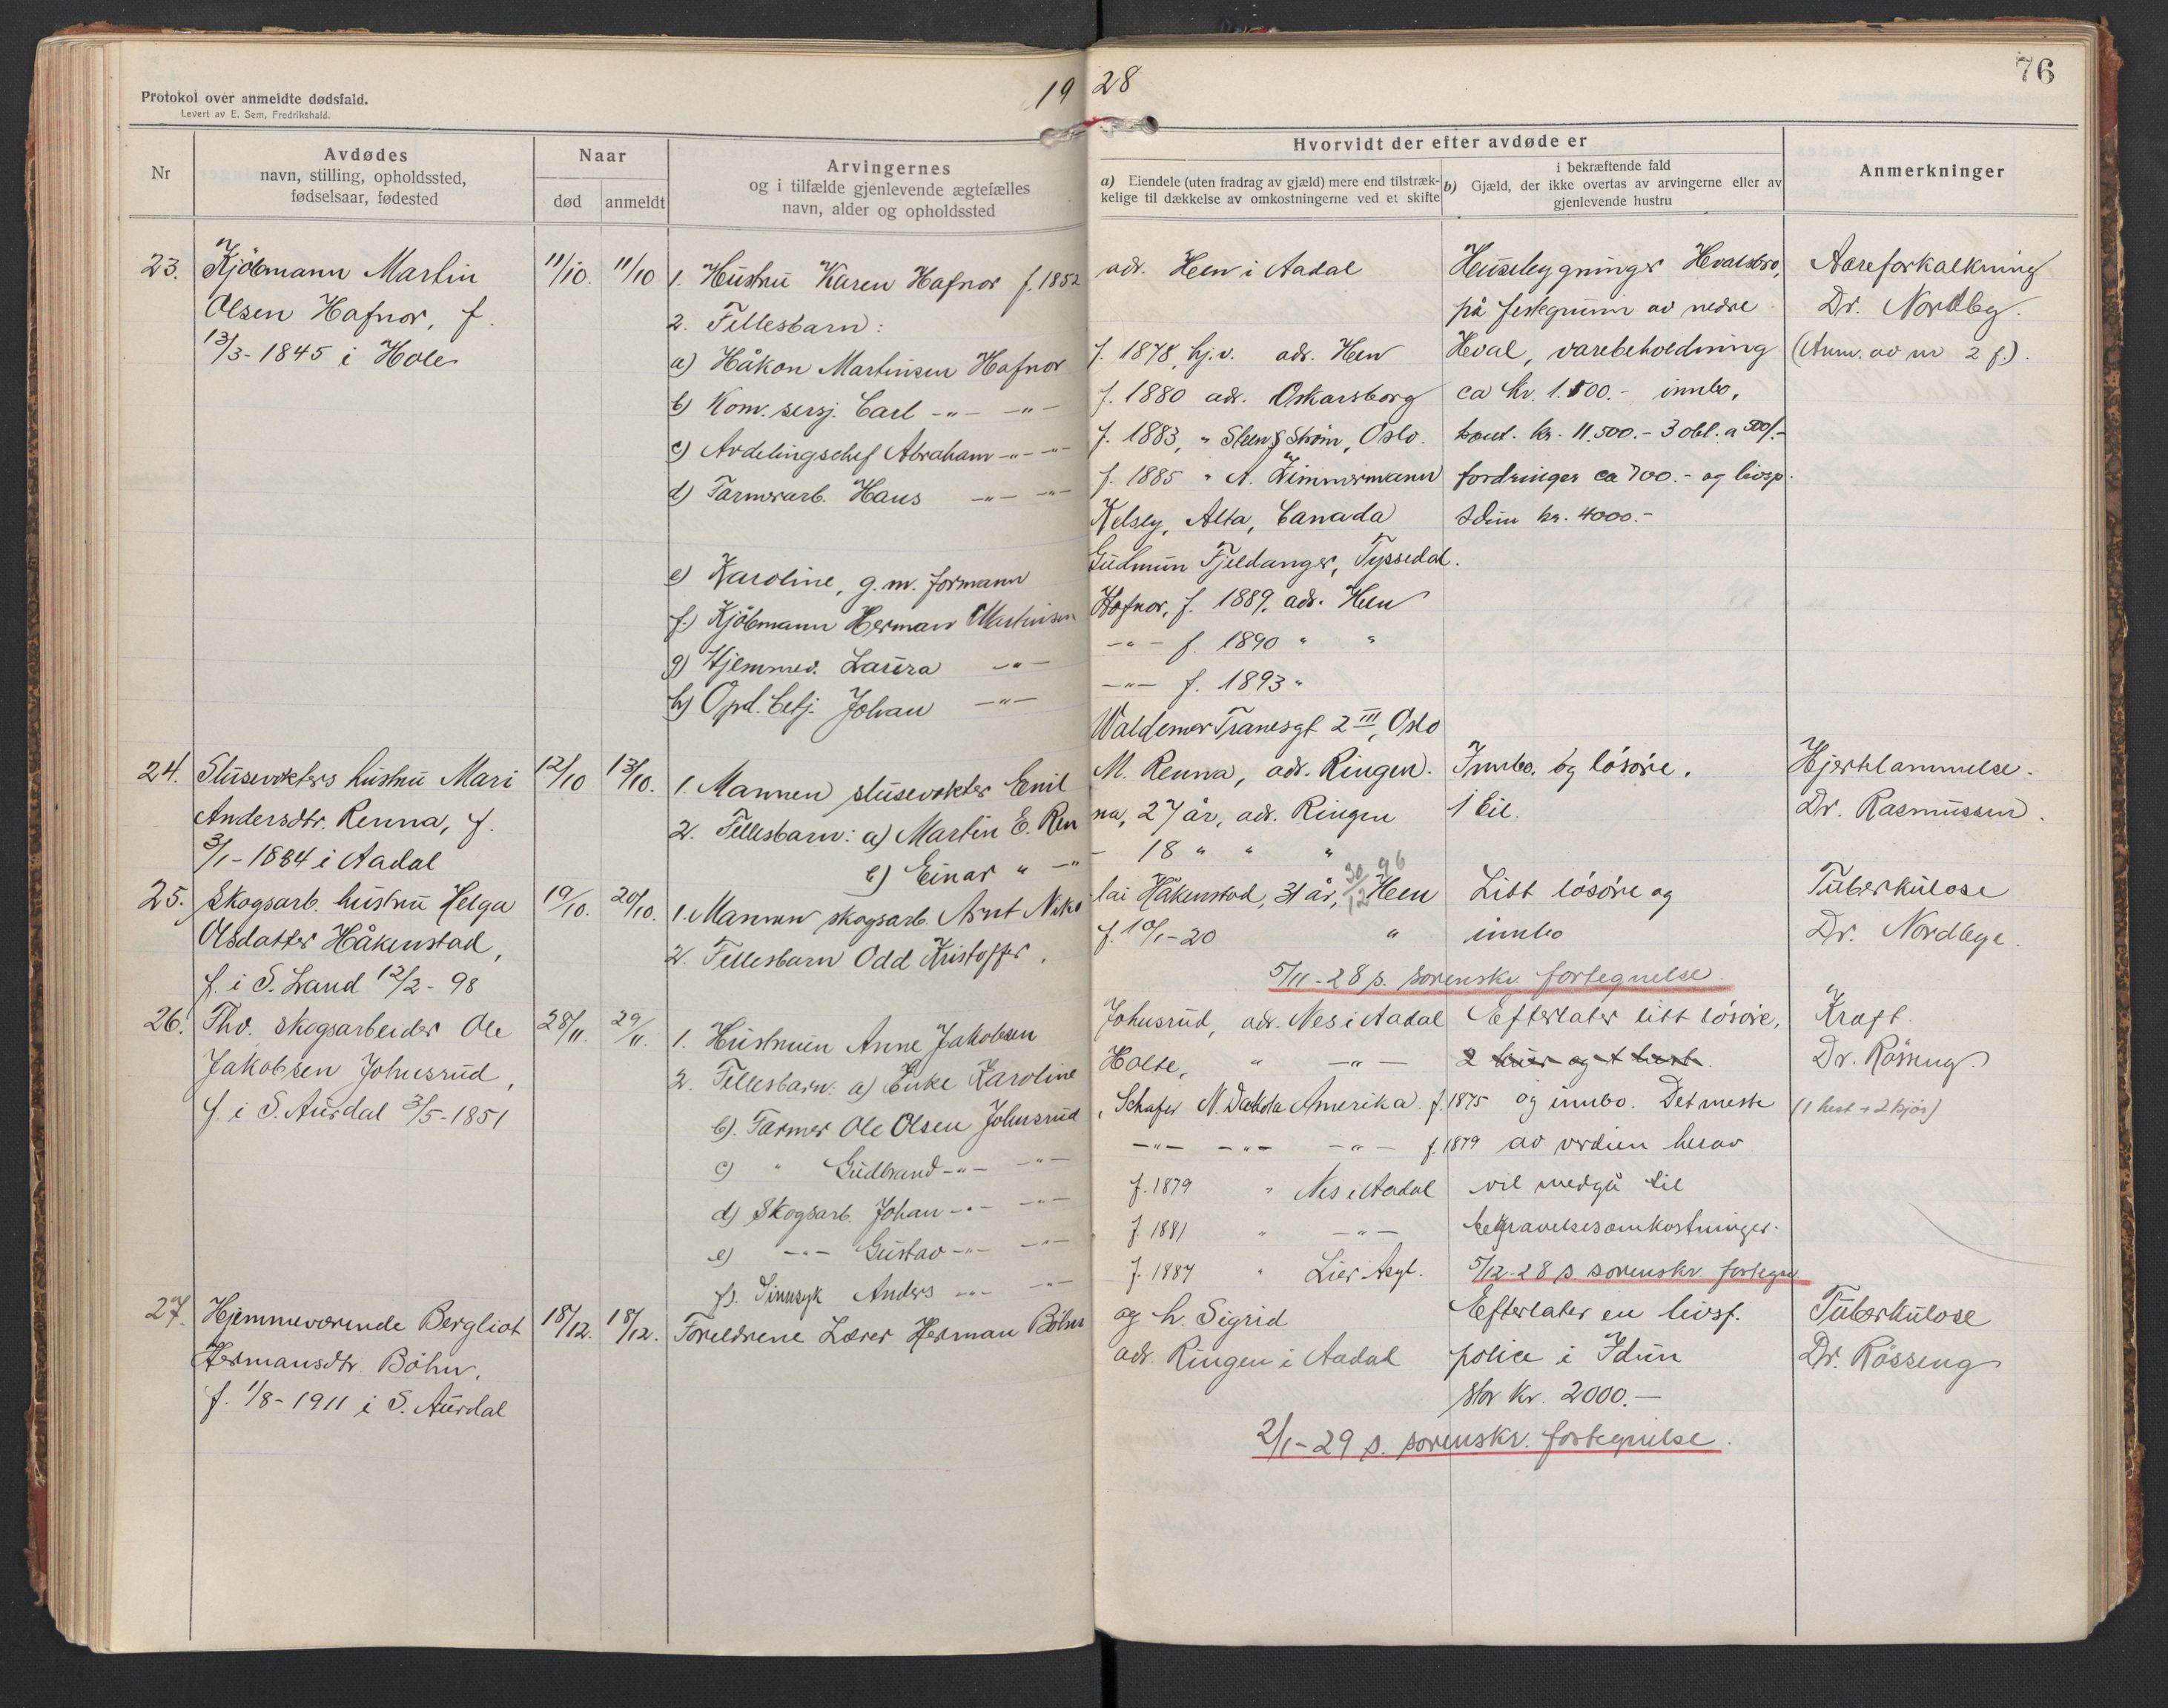 Protokol over anmeldte dødsfald.
Levert av E. Sem, Fredrikshald.
19 28
76
Nr
Avdødes
navn, stilling, opholdssted,
fødselsaar, fødested
Naar
død
anmeldt
Arvingernes
og i tilfælde gjenlevende ægtefælles
navn, alder og opholdssted
Hvorvidt der efter avdøde er
a) Eiendele (uten fradrag av gjæld) mere end tilstræk-
kelige til dækkelse av omkostningerne ved et skifte
i bekræftende fald
b) Gjæld, der ikke overtas av arvingerne eller av
gjenlevende hustru
Anmerkninger
23. Kjöbmann Martin
Olsen Hafnor, f.
13/3-1845 i Hole
11/10. 11/10
1. Hustru Karen Hafnor f. 1852
2. Fellesbarn:
a) Håkon Martinsen Hafnor
b) Kom. sersj. Carl -"- -"-
c) Avdelingschef Abraham -"- -"-
d) Farmerarb. Hans -"- -"-
e) Karoline, g.m. formann
f.) Kjöbmann Herman Martinsen
g) Hjemmev. Laura -"-
h) Opd. betj. Johan -"-
adr. Heen i Aadal
f. 1878, hj.v. adr. Heen
f. 1880 adr. Oskarsborg
f. 1883, " Steen & Ström, Oslo.
f. 1885 " A. Zimmermann
Kelsey, Alta, Canada
Gudmun Fjeldanger, Tyssedal.
Hafnor, f. 1889. adr. Heen
-"- f. 1890 " "
-"- f. 1893 "
Waldemar Tranesgt 2 III, Oslo
Husebygninger Hvalsbro,
på festegrunn av nedre
Hval, varebeholdning
ca kr. 1.500.- innbo,
kont. kr. 11.500.- 3 obl. a 500/.-
fordringer ca 700.- og livsp.
Idun kr. 4000.-
Aareforkalkning
Dr. Nordby.
(Anm. av nr 2 f.).
24. Slusevokters hustru Mari
Andersdtr. Renna, f.
3/1-1884 i Aadal
12/10 13/10.
1. Mannen slusevokter Emil
2. Fellesbarn: a) Martin E. Ren
b) Einar " -"
M. Renna, adr. Ringen.
na, 27 år, adr. Ringen
- 18 " " "
Innbo. og lösöre.
1 bil.
Hjertelammelse.
Dr. Rasmussen.
25. Skogsarb. hustru Helga
Olsdatter Håkenstad,
f. i S. Land 12/2-98
19/10. 20/10.
1. Mannen skogsarb. Arnt Niko
2. Fellesbarn Odd Kristoffer.
lai Håkenstad, 31 år, 30/12 96 Heen
f. 10/1-20 "
Litt lösöre og
innbo
Tuberkulose
Dr. Nordbye.
5/11-28 s. sorenskr. fortegnelse.
26. Fhv. skogsarbeider Ole
Jakobsen Johnsrud,
f. i S. Aurdal 3/5-1851
28/11. 29/11.
1. Hustruen Anne Jakobsen
2. Fellesbarn: a) Enke Karoline
b). Farmer Ole Olsen Johnsrud
c) " Gudbrand -"- -"-
d) Skogsarb. Johan -"- -"-
e) -"- Gustav -"- -"-
f). Sinnsyk Anders -"- -"-
Johnsrud, adr. Nes i Aadal
Holte, " -"-
, Schafer N. Dakota Amerika. f. 1875
-"- -"- -"- f. 1879
f. 1879 " Nes i Aadal
f. 1881 " -"-
f. 1887 " Lier Asyl.
Efterlater litt lösöre,
2 kuer og 1 hest.
og innbo. Det meste
av verdien herav
vil medgå til
begravelsesomkostninger.
5/12-28 s. sorenskr. fortegn
Kraft.
Dr. Rösseng.
(1 hest + 2 kjör)
27. Hjemmeværende Bergliot
Hermansdtr. Böhn,
f. 1/8-1911 i S. Aurdal
18/12. 18/12.
Foreldrene Lærer Herman Böhn
og h. Sigrid
adr. Ringen i Aadal
Efterlater en livsf.
police i Idun
stor kr. 2000.-
Tuberkulose
Dr. Rösseng
2/1-29 s. sorenskr. fortegnelse.